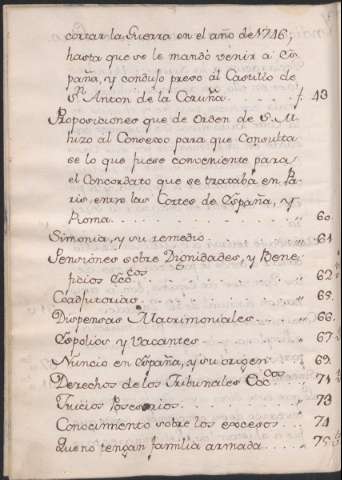 cortar la Guerra en el año de 1746,
hasta que se le mandó venir à Es-
paña, y condujo preso al Castillo de
Sn. Anton de la Coruña . . . . . . f. 43
Proposiciones que de Orden de S. M.
hizo al Consexo para que Consulta-
se lo que fuese conveniente para
el Concordato que se trataba en Pa-
ris, entre las Cortes de España, y
Roma . . . . . . . . . . . . . . . . . . " 60.
Simonia, y su remedio . . . . . . . . . " 61
Pensiones sobre Dignidades, y Bene-
ficios Eccos . . . . . . . . . . . . . . . " 62
Coadjutorias . . . . . . . . . . . . . . . " 65.
Dispensas Matrimoniales . . . . . . " 66.
Espolios y Vacantes . . . . . . . . . . " 67.
Nuncio en España, y su origen . . . " 69.
Derechos de los Tribunales Eccos . . " 71
Juicios Posesorios . . . . . . . . . . . " 73
Conocimiento sobre los excesos . . . " 74
Que no tengan familia armada . . . . " 75